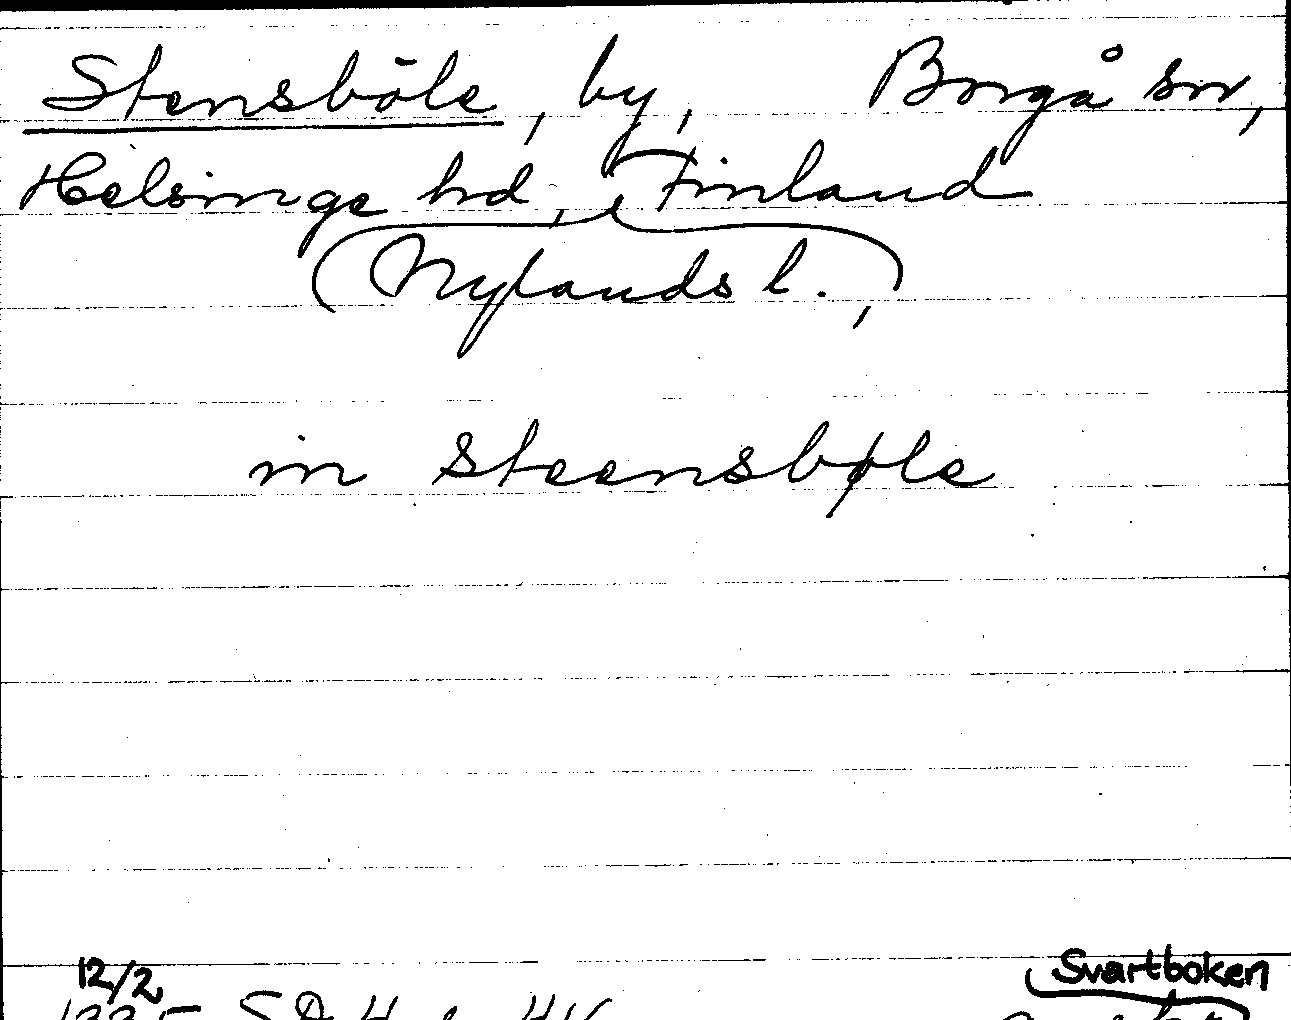 Stensböle, by, Borgå sn,
Helsinge hd, Finland
(Nylands l.),
in steensbøle
12/2 Svartboken
1335 SD 4